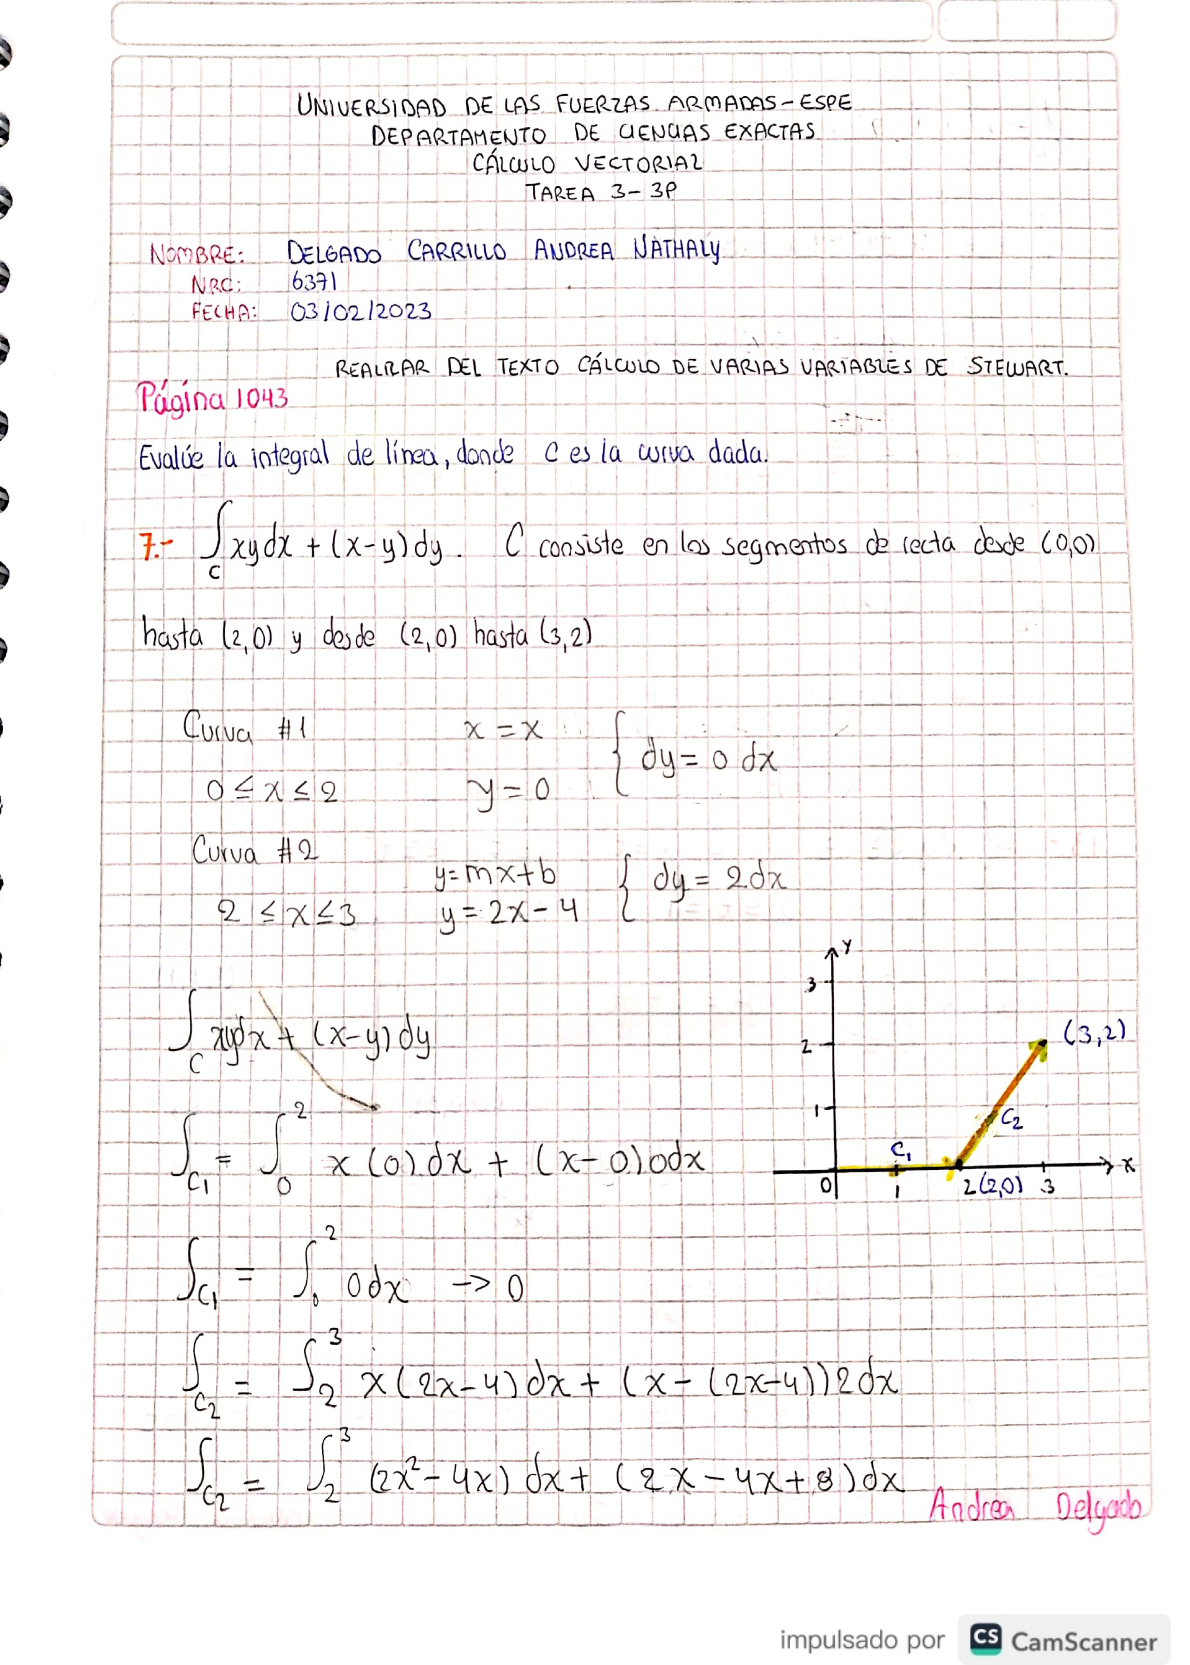 UNIVERSIDAD DE LAS FUERZAS ARMADAS-ESPE
DEPARTAMENTO DE CIENCIAS EXACTAS
CÁLCULO VECTORIAL
TAREA 3-3P
NOMBRE: DELGADO CARRILLO ANDREA NATHALY
NRC: 6371
FECHA: 03/02/2023
REALIZAR DEL TEXTO CÁLCULO DE VARIAS VARIABLES DE STEWART.
Página 1043
Evalúe la integral de línea, donde C es la curva dada.
7.- ∫_C xydx + (x-y)dy. C consiste en los segmentos de recta desde (0,0)
hasta (2,0) y desde (2,0) hasta (3,2)
Curva #1 x = x { dy = 0 dx
0 ≤ x ≤ 2 y = 0
Curva #2 y = mx+b { dy = 2dx
2 ≤ x ≤ 3 y = 2x - 4
∫_C xydx + (x-y)dy
∫_C₁ = ∫₀² x(0)dx + (x-0)0dx
∫_C₁ = ∫₀² 0dx → 0
∫_C₂ = ∫₂³ x(2x-4)dx + (x-(2x-4))2dx
∫_C₂ = ∫₂³ (2x²-4x)dx + (2x-4x+8)dx
Y
3
2 (3,2)
1 C₂
C₁
x
0 1 2(2,0) 3
Andrea Delgado
impulsado por CS CamScanner